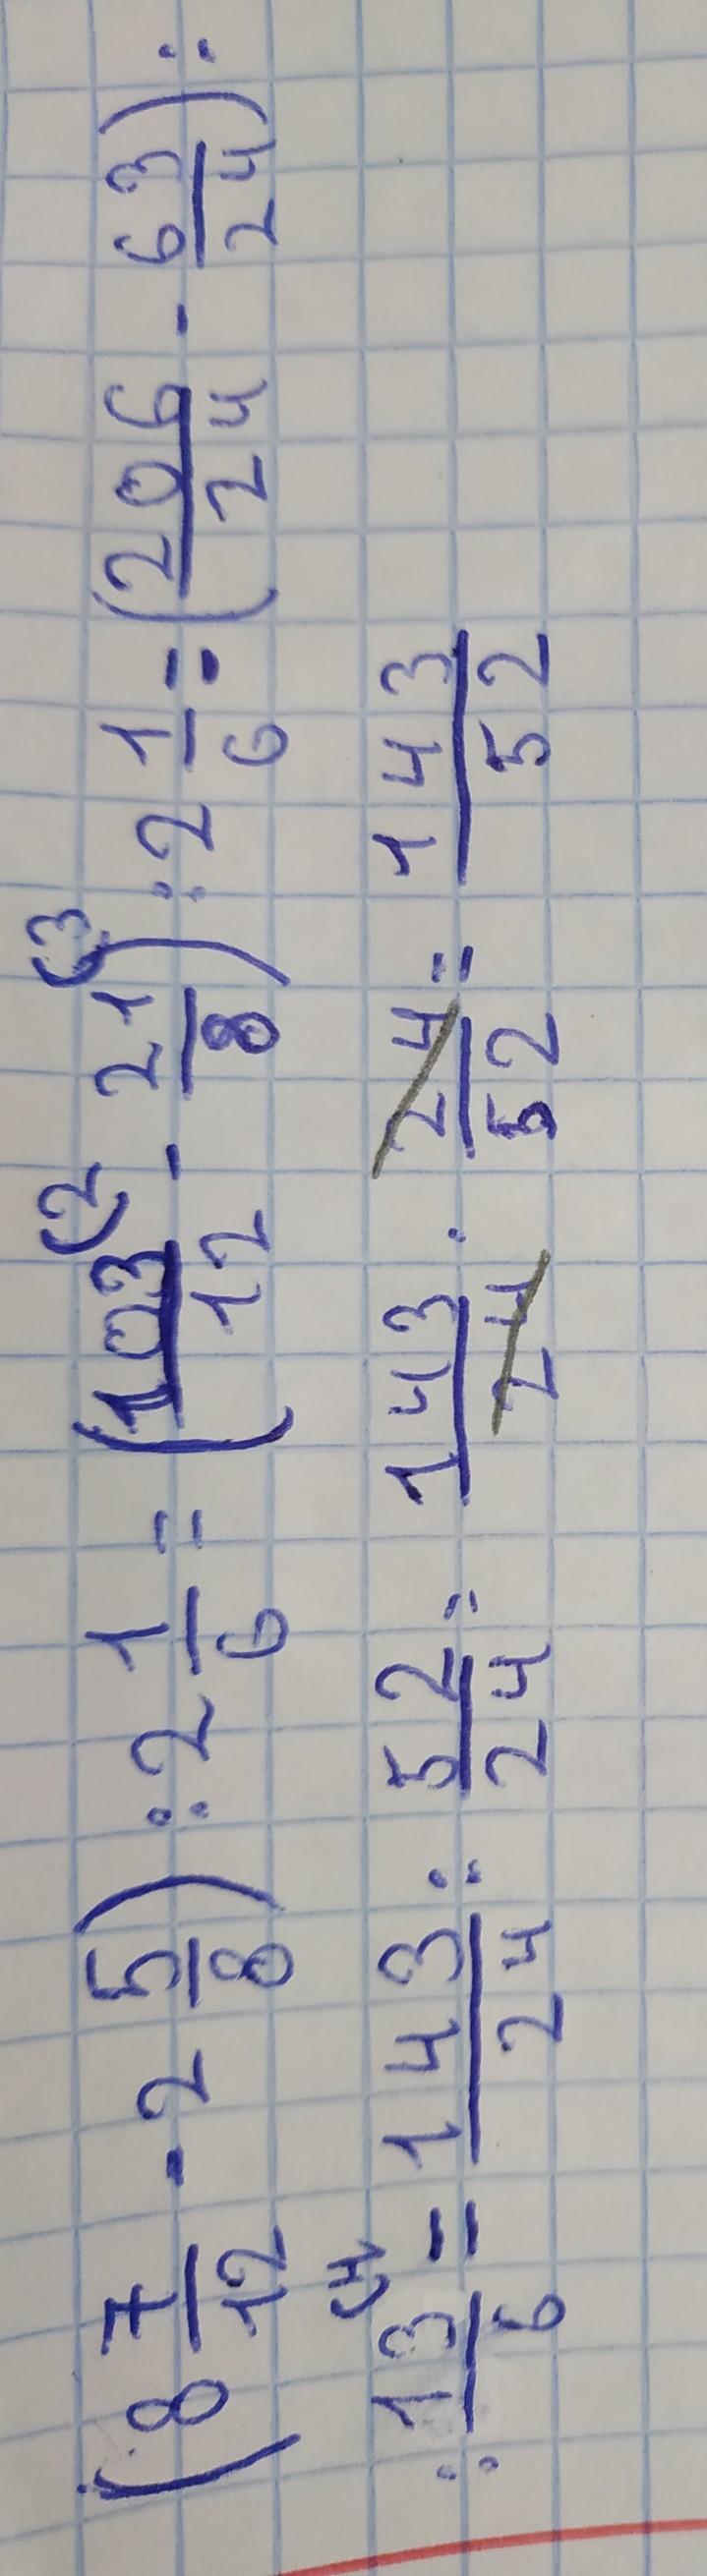 (8 7/12 - 2 5/8) : 2 1/6 = (103/12 (2 - 21/8 (3) : 2 1/6 = (206/24 - 63/24) :
: 13/6 (4 = 143/24 : 52/24 = 143/24 · 24/52 = 143/52